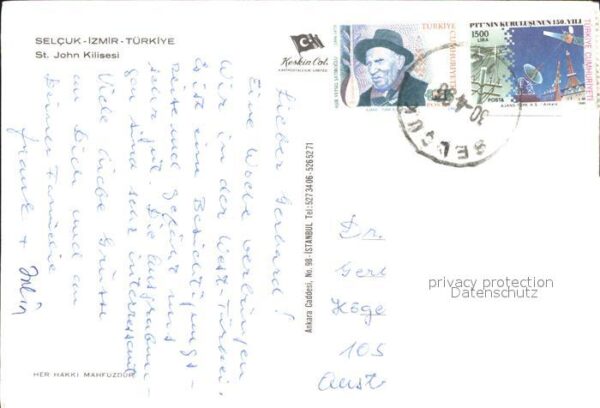 SELÇUK - İZMİR - TÜRKİYE
St. John Kilisesi
Keskin Col.
KARTPOSTALCILIK LIMITED
TÜRKİYE CUMHURİYETİ
PTT'NİN KURULUŞUNUN 150. YILI
1500
LİRA
POSTA
TÜRKİYE CUMHURİYETİ
SELÇUK
Lieber Gerhard!
Eine Woche verbringen
wir in der West-Türkei.
Es ist eine Besichtigungs-
reise und gefällt uns
sehr gut. Die Ausgrabun-
gen sind sehr interessant
Viele liebe Grüsse
an Dich und an
Deine Familie
Frank +
Ankara Caddesi, No. 98 - İSTANBUL Tel: 527 34 06 - 526 52 71
Dr.
Ger
105
Aust
privacy protection
Datenschutz
HER HAKKI MAHFUZDUR